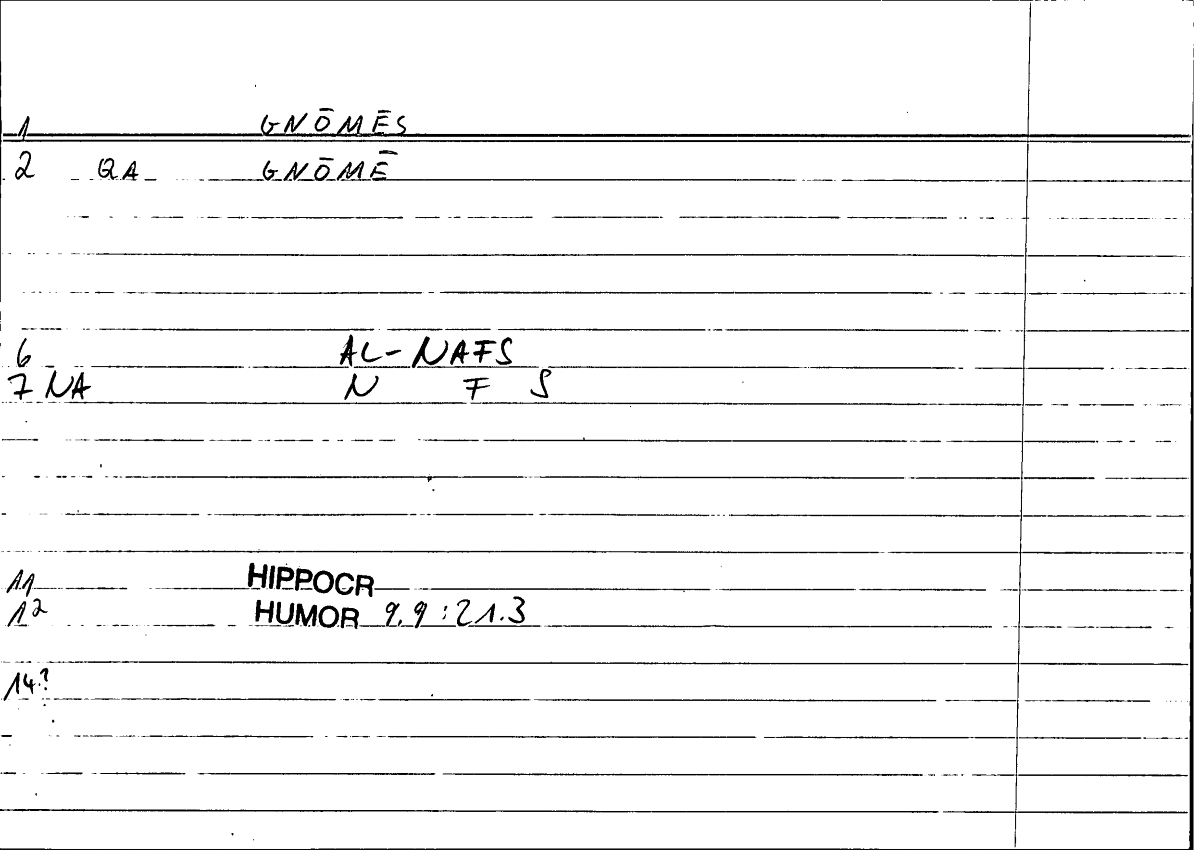 1 GNŌMĒS
2 QA GNŌMĒ
6 AL-NAFS
7 NA N F S
11 HIPPOCR
12 HUMOR 9.9:21.3
14?